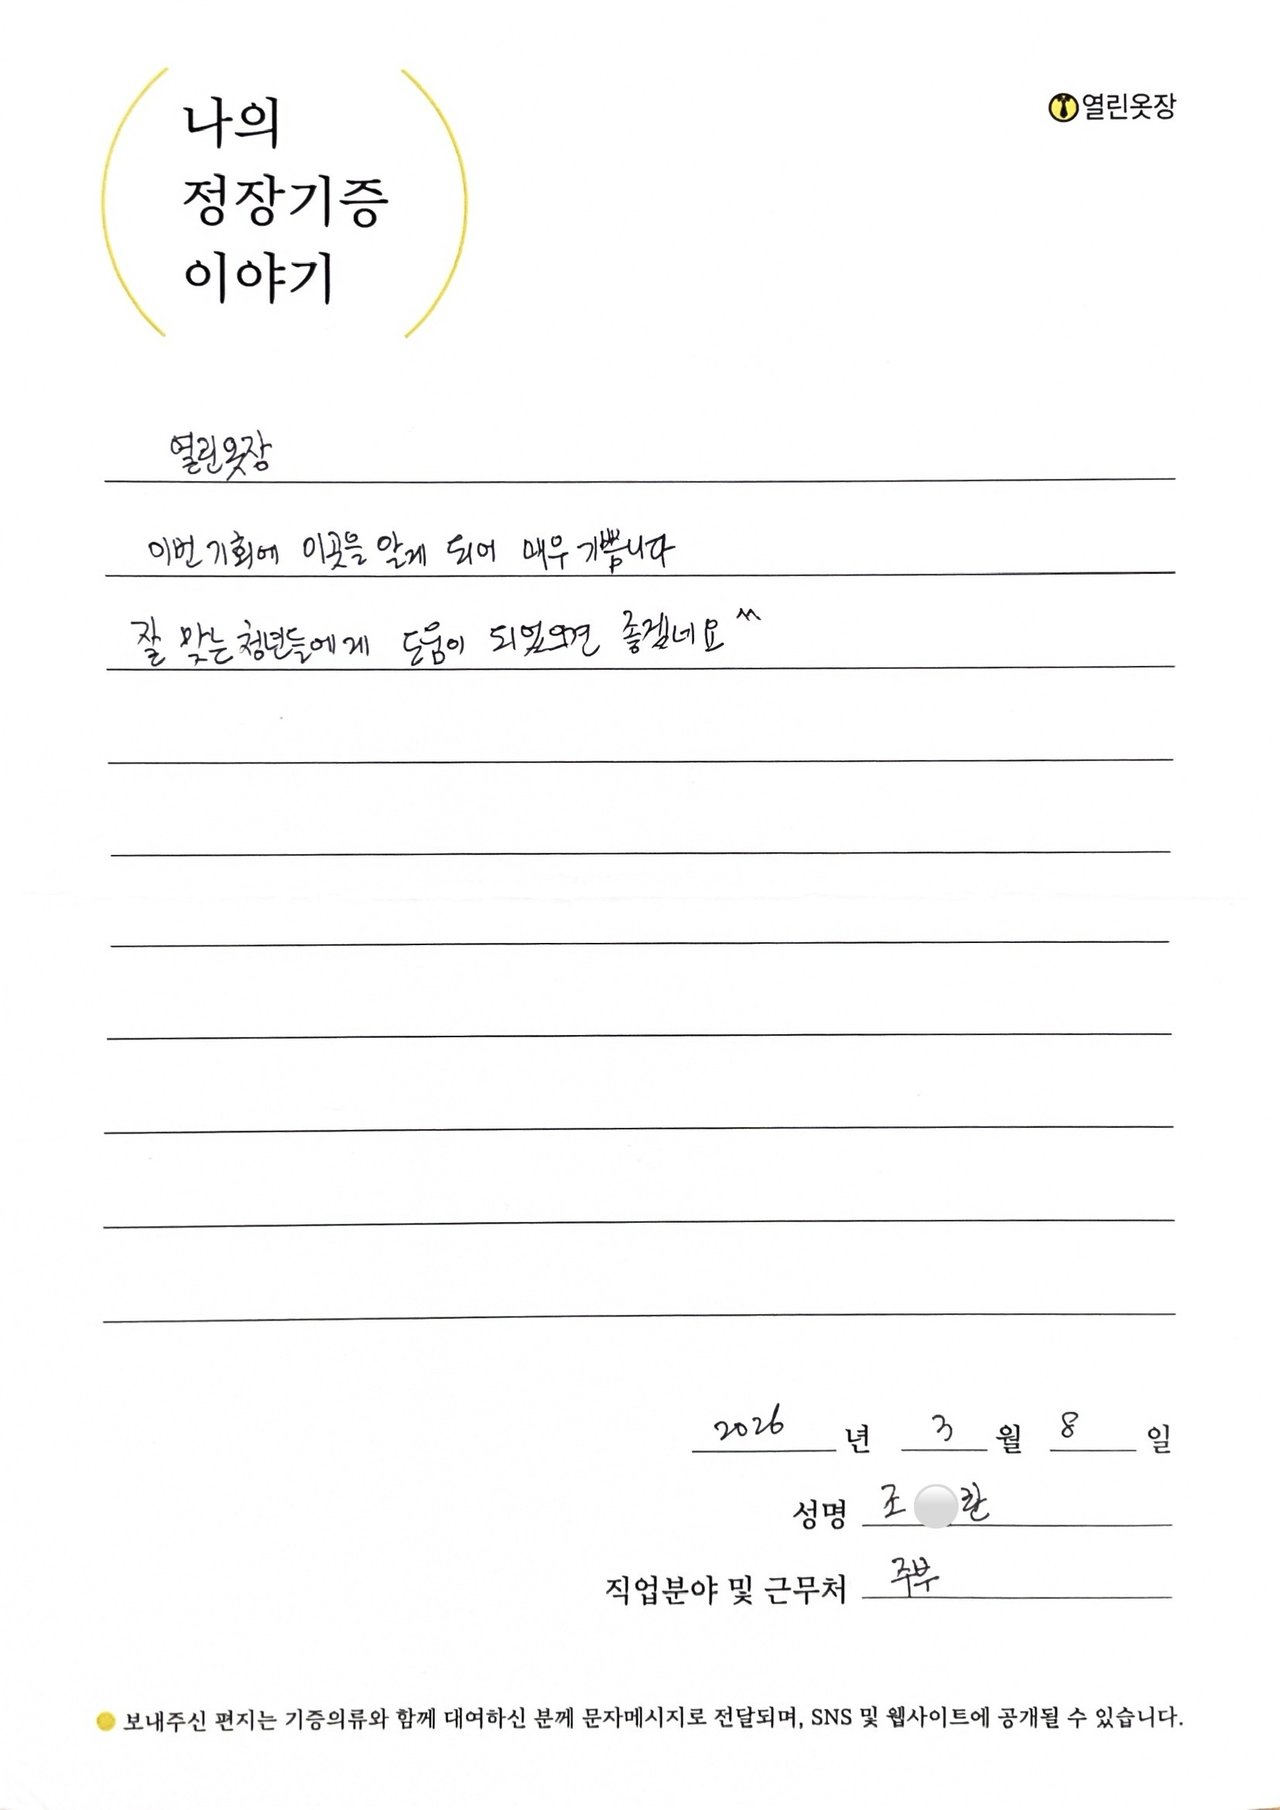 나의
정장기증
이야기
열린옷장
열린옷장
이번 기회에 이곳을 알게 되어 매우 기쁩니다
잘 맞는 청년들에게 도움이 되었으면 좋겠네요 ^^
2026 년 3 월 8 일
성명 조 란
직업분야 및 근무처 주부
보내주신 편지는 기증의류와 함께 대여하신 분께 문자메시지로 전달되며, SNS 및 웹사이트에 공개될 수 있습니다.